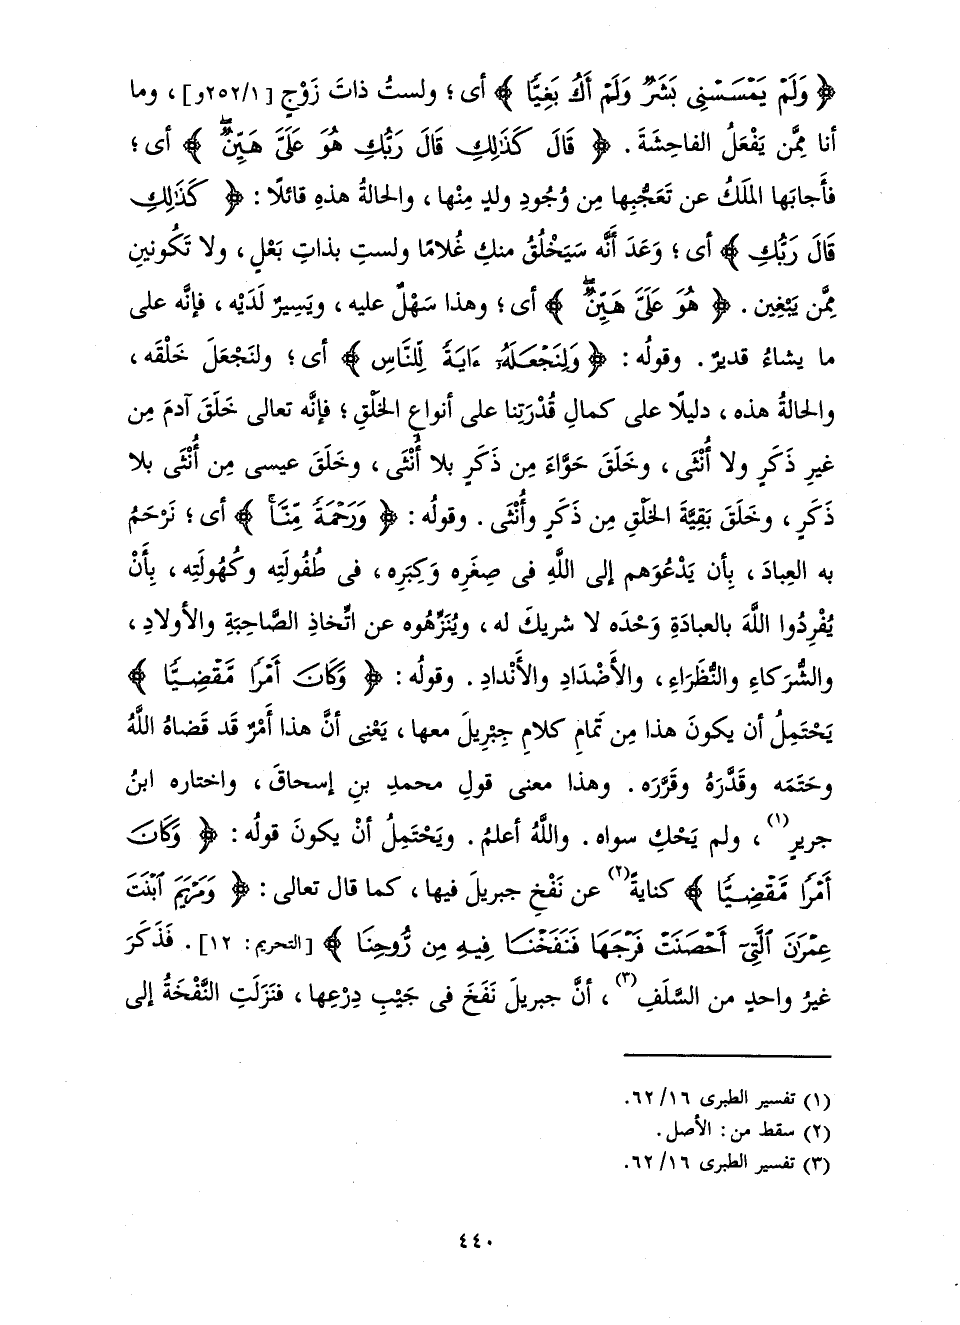 ﴿ وَلَمْ يَمْسَسْنِى بَشَرٌ وَلَمْ أَكُ بَغِيًّا ﴾ أى ؛ ولستُ ذاتَ زَوْجٍ [ ٢٥٢/١و ] ، وما
أنا مِمَّن يَفْعَلُ الفاحِشَةَ . ﴿ قَالَ كَذَٰلِكِ قَالَ رَبُّكِ هُوَ عَلَىَّ هَيِّنٌ ۖ ﴾ أى ؛
فأَجابَها المَلَكُ عن تَعَجُّبِها مِن وُجُودِ ولدٍ مِنْها ، والحالةُ هذه قائلًا : ﴿ كَذَٰلِكِ
قَالَ رَبُّكِ ﴾ أى ؛ وَعَدَ أنَّه سَيَخْلُقُ منكِ غُلامًا ولستِ بذاتِ بَعْلٍ ، ولا تَكُونينِ
مِمَّن يَبْغِين . ﴿ هُوَ عَلَىَّ هَيِّنٌ ۖ ﴾ أى ؛ وهذا سَهْلٌ عليه ، ويَسِيرٌ لَدَيْه ، فإنَّه على
ما يشاءُ قديرٌ . وقولُه : ﴿ وَلِنَجْعَلَهُۥٓ ءَايَةً لِّلنَّاسِ ﴾ أى ؛ ولنَجْعَلَ خَلْقَه ،
والحالةُ هذه ، دليلًا على كمالِ قُدْرَتِنا على أنواعِ الخَلْقِ ؛ فإنَّه تعالى خَلَقَ آدمَ مِن
غيرِ ذَكَرٍ ولا أُنْثَى ، وخَلَقَ حَوَّاءَ مِن ذَكَرٍ بلا أُنْثَى ، وخَلَقَ عيسى مِن أُنْثَى بلا
ذَكَرٍ ، وخَلَقَ بَقِيَّةَ الخَلْقِ مِن ذَكَرٍ وأُنْثَى . وقولُه : ﴿ وَرَحْمَةً مِّنَّاۚ ﴾ أى ؛ نَرْحَمُ
به العِبادَ ، بِأن يَدْعُوَهم إلى اللَّهِ فى صِغَرِه وَكِبَرِه ، فى طُفُولَتِه وكُهُولَتِه ، بِأَنْ
يُفْرِدُوا اللَّهَ بالعبادَةِ وَحْدَه لا شريكَ له ، ويُنَزِّهُوه عن اتِّخاذِ الصَّاحِبَةِ والأولادِ ،
والشُّرَكاءِ والنُّظَراءِ ، والأَضْدَادِ والأَنْدادِ . وقولُه : ﴿ وَكَانَ أَمْرًا مَّقْضِيًّا ﴾
يَحْتَمِلُ أن يكونَ هذا مِن تَمَامِ كلامِ جِبْرِيلَ معها ، يَعْنِى أنَّ هذا أَمْرٌ قَد قَضاهُ اللَّهُ
وحَتَمَه وقَدَّرَهُ وقَرَّرَه . وهذا معنى قولِ محمدِ بنِ إسحاقَ ، واختاره ابنُ
جريرٍ(١) ، ولم يَحْكِ سواه . واللَّهُ أعلمُ . ويَحْتَمِلُ أنْ يكونَ قولُه : ﴿ وَكَانَ
أَمْرًا مَّقْضِيًّا ﴾ كنايةً(٢) عن نَفْخِ جبريلَ فيها ، كما قال تعالى : ﴿ وَمَرْيَمَ ٱبْنَتَ
عِمْرَٰنَ ٱلَّتِىٓ أَحْصَنَتْ فَرْجَهَا فَنَفَخْنَا فِيهِ مِن رُّوحِنَا ﴾ [ التحريم : ١٢ ] . فَذَكَرَ
غيرُ واحدٍ من السَّلَفِ(٣) ، أنَّ جبريلَ نَفَخَ فى جَيْبِ دِرْعِها ، فنَزَلَتِ النَّفْخَةُ إلى
(١) تفسير الطبرى ١٦/ ٦٢.
(٢) سقط من : الأصل .
(٣) تفسير الطبرى ١٦/ ٦٢.
٤٤٠